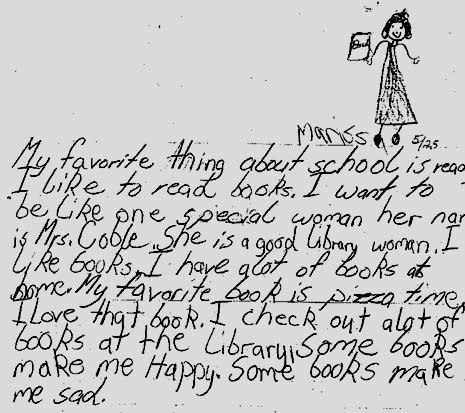 Book
Mariss 5/25
My favorite thing about school is read
I Like to read books. I want to
be Like one special woman her nam
is Mrs. Coble. She is a good Library woman. I
Like books. I have alot of books at
home. My favorite book is pizza time
I Love that book. I check out alot of
books at the Library. Some books
make me Happy. Some books make
me sad.